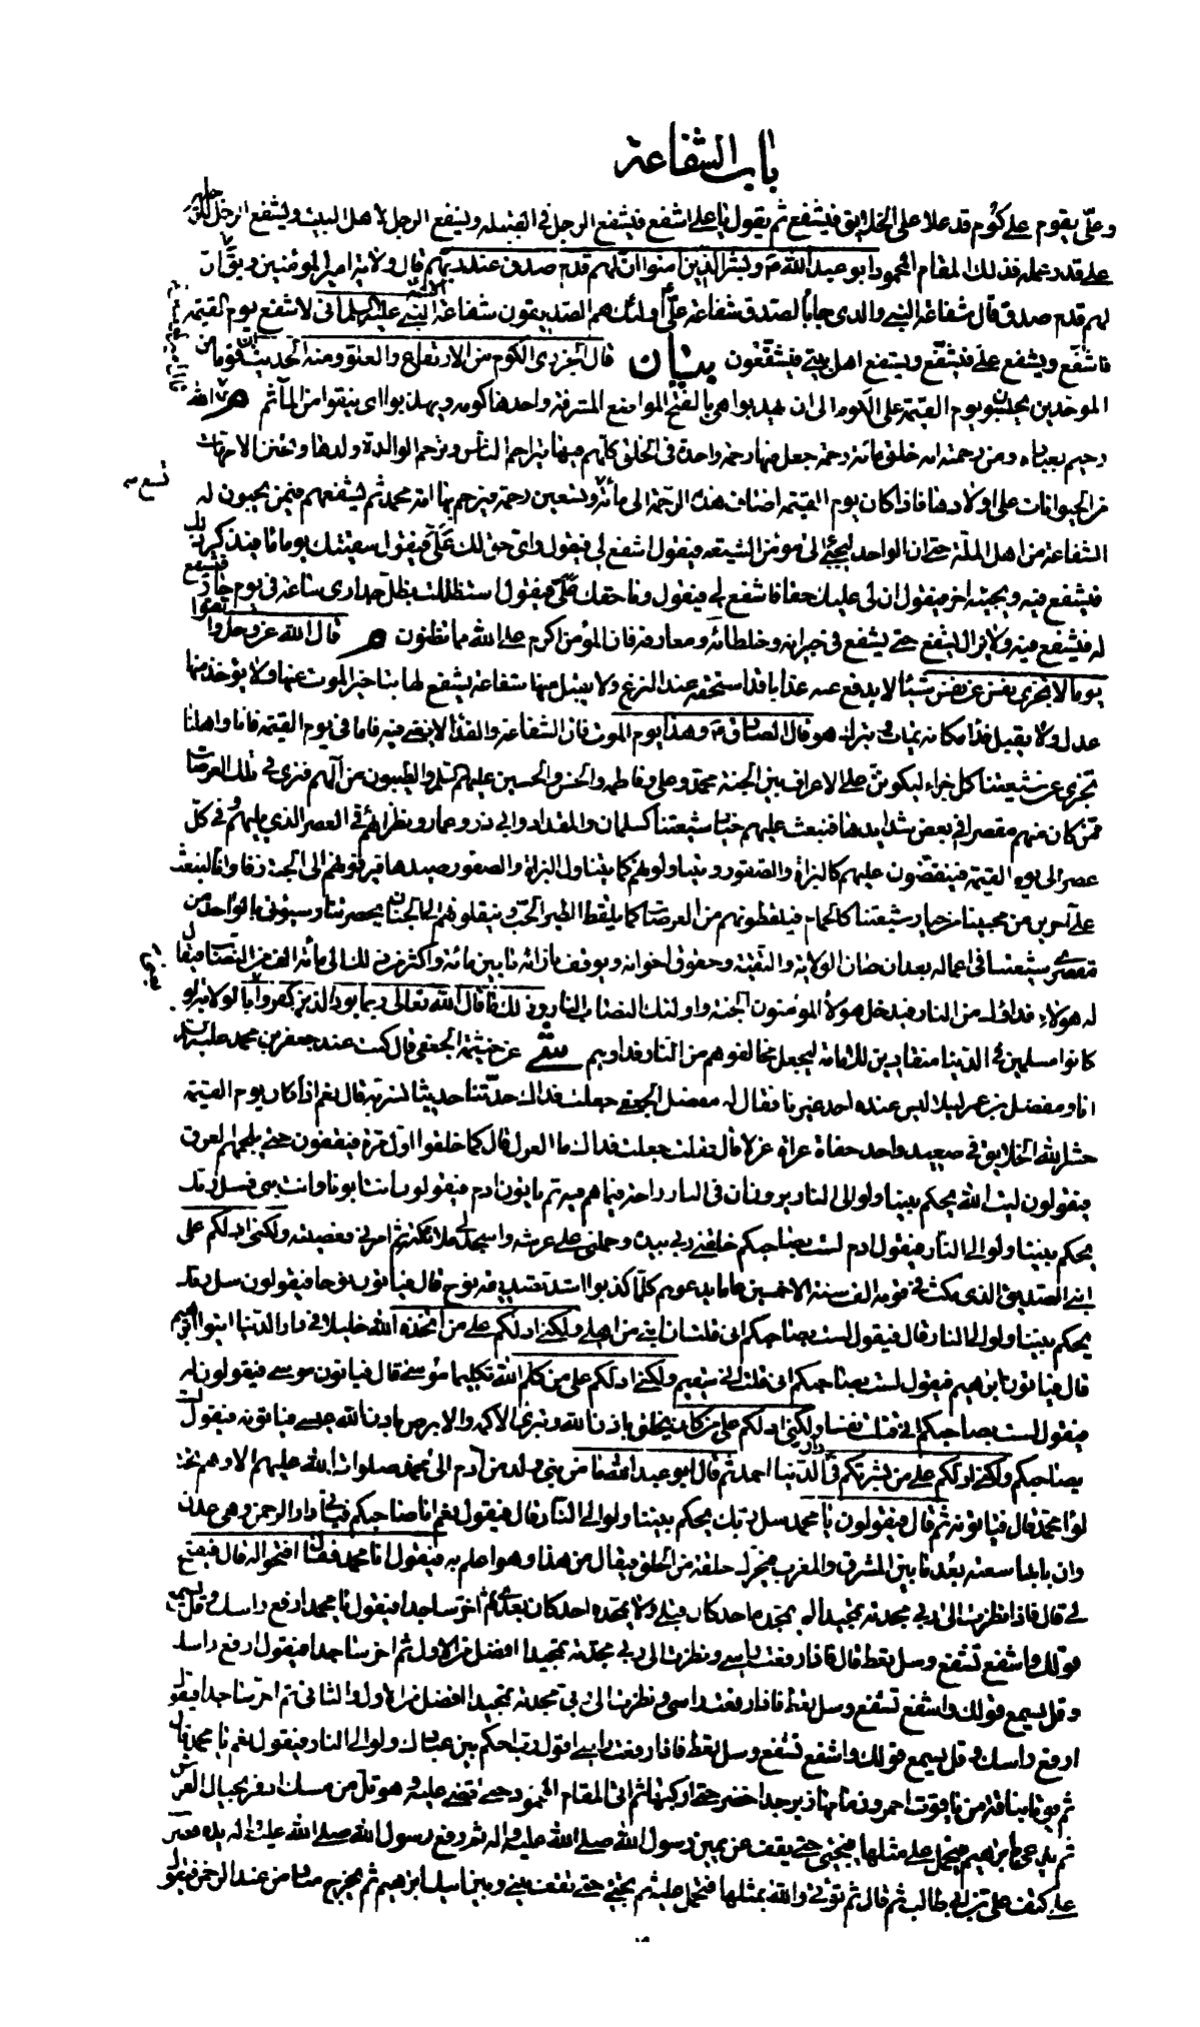 باب الشفاعة
وعلى يقوم على كوم قد علا على الخلايق فيشفع ثم يقول يا على اشفع فيشفع الرجل فى القبيلة ويشفع الرجل لاهل البيت ويشفع الرجل للرجلين
على قدر عمله فذلك المقام المحمود ابو عبد الله ع وبشر الذين امنوا ان لهم قدم صدق عند ربهم قال ولاية امير المؤمنين ويقال ان
لهم قدم صدق قال شفاعة النبى والذى جاء بالصدق شفاعة على اولئك هم الصديقون شفاعة الائمة النبى عليه السلام انى لاشفع يوم القيمة
فاشفع ويشفع على فيشفع ويشفع اهل بيتى فيشفعون بيان قال الجزرى الكوم من الارتفاع والعلو ومنه الحديث ان قوما من
الموحدين يحبسون يوم القيمة على الكوم الى ان يهذبوا هى بالفتح المواضع المشرفة واحدها كومة ويهذبوا اى ينقوا من المآثم م الله
رحيم بعباده ومن رحمته انه خلق مائة رحمة جعل منها رحمة واحدة فى الخلق كلهم فبها يتراحم الناس وترحم الوالدة ولدها وتحنن الامهات
من الحيوانات على اولادها فاذا كان يوم القيمة اضاف هذه الرحمة الى مائة وتسعين رحمة فيرحم بها امة محمد ثم يشفعهم فيمن يحبون له
تسع صه
الشفاعة من اهل الملة حتى ان الواحد ليجئ الى مؤمن الشيعة فيقول اشفع لى فيقول واى حق لك على فيقول سقيتك يوما ماء فيذكر ذلك
فيشفع فيه ويجيئه اخر فيقول ان لى عليك حقا فاشفع لى فيقول وما حقك على فيقول استظللت بظل جدارى ساعة فى يوم حار فيشفع
له فيشفع فيه ولا يزال يشفع حتى يشفع فى جيرانه وخلطائه ومعارفه فان المؤمن اكرم على الله مما تظنون م قال الله عز وجل واتقوا
يوما لا تجزى نفس عن نفس شيئا لا يدفع عنه عذابا قد استحقه عند النزع ولا يقبل منها شفاعة يشفع لها بتاخير الموت عنها ولا يؤخذ منها
عدل ولا يقبل فداء مكانه يمات ويترك هو قال الصادق ع وهذا يوم الموت فان الشفاعة والفداء لا يغنى فيه فاما فى يوم القيمة فانا واهلنا
نجزى عن شيعتنا كل جزاء ليكونن على الاعراف بين الجنة محمد وعلى وفاطمة والحسن والحسين عليهم السلم والطيبون من آلهم فنرى فى تلك العرصات
ممن كان منهم مقصرا فى بعض شدايدها فنبعث عليهم خيار شيعتنا كسلمان والمقداد وابى ذر وعمار ونظرائهم فى العصر الذى يليهم وفى كل
عصر الى يوم القيمة فينقضون عليهم كالبزاة والصقور ويتناولونهم كما يتناول البزاة والصقور صيدها فيزفونهم الى الجنة زفا وانا لنبعث
على آخرين من محبينا من خيار شيعتنا كالحمام فيلتقطونهم من العرصات كما يلتقط الطير الحب وينقلونهم الى الجنان بحضرتنا وسيؤتى بالواحد من
مقصرى شيعتنا فى اعماله بعد ان حاز الولاية والتقية وحقوق اخوانه ويوقف بازائه ما بين مائة واكثر من ذلك الى مائة الف من النصاب فيقال
له هؤلاء فداؤك من النار فيدخل هؤلاء المؤمنون الجنة واولئك النصاب النار وذلك ما قال الله تعالى ربما يود الذين كفروا بالولاية لو
كانوا مسلمين فى الدنيا منقادين للامامة ليجعل مخالفوهم من النار فداءهم شى عن خيثمة الجعفى قال كنت عند جعفر بن محمد عليه
انا ومفضل بن عمر ليلا ليس عنده احد غيرنا فقال له مفضل الجعفى جعلت فداك حدثنا حديثا نسر به قال نعم اذا كان يوم القيمة
حشر الله الخلايق فى صعيد واحد حفاة عراة غرلا قال فقلت جعلت فداك ما الغرل قال كما خلقوا اول مرة فيقفون حتى يلجمهم العرق
فيقولون ليت الله يحكم بيننا ولو الى النار يرون ان فى النار راحة فيما هم فيه ثم ياتون ادم فيقولون انت ابونا وانت نبى فسل ربك
يحكم بيننا ولو الى النار فيقول ادم لست بصاحبكم خلقنى ربى بيده وحملنى على عرشه واسجد لى ملائكته ثم امرنى فعصيته ولكنى ادلكم على
ابنى الصديق الذى مكث فى قومه الف سنة الا خمسين عاما يدعوهم كلما كذبوا اشتد تصديقه نوح قال فياتون نوحا فيقولون سل ربك
يحكم بيننا ولو الى النار قال فيقول لست بصاحبكم انى قلت ان ابنى من اهلى ولكنى ادلكم على من اتخذه الله خليلا فى دار الدنيا ايتوا ابرهيم
قال فياتون ابرهيم فيقول لست بصاحبكم انى قلت انى سقيم ولكنى ادلكم على من كلم الله تكليما موسى قال فياتون موسى فيقولون له
فيقول لست بصاحبكم انى قتلت نفسا ولكنى ادلكم على من كان يخلق باذن الله ويبرئ الاكمه والابرص باذن الله عيسى فياتونه فيقول لست
بصاحبكم ولكنى ادلكم على من بشرتكم به فى دار الدنيا احمد ثم قال ابو عبد الله ع ما من نبى ولد من آدم الى محمد صلوات الله عليهم الا وهم تحت
لواء محمد قال فياتونه ثم قال فيقولون يا محمد سل ربك يحكم بيننا ولو الى النار قال فيقول نعم انا صاحبكم فياتى دار الرحمن وهى عدن
وان بابها سعته بعد ما بين المشرق والمغرب فيحرك حلقة من الحلق فيقال من هذا وهو اعلم به فيقول انا محمد فيقال افتحوا له قال فيفتح
لى قال فاذا نظرت الى ربى مجدته تمجيدا لم يمجده احد كان قبلى ولا يمجده احد كان بعدى ثم اخر ساجدا فيقول يا محمد ارفع راسك وقل يسمع
قولك واشفع تشفع وسل تعط قال فاذا رفعت راسى ونظرت الى ربى مجدته تمجيدا افضل من الاول ثم اخر ساجدا فيقول ارفع راسك
وقل يسمع قولك واشفع تشفع وسل تعط فاذا رفعت راسى ونظرت الى ربى مجدته تمجيدا افضل من الاول والثانى ثم اخر ساجدا فيقول
ارفع راسك وقل يسمع قولك واشفع تشفع وسل تعط فاذا رفعت راسى اقول رب احكم بين عبادك ولو الى النار فيقول نعم يا محمد قال
ثم يؤتى بناقة من ياقوت احمر وزمامها زبرجد اخضر حتى اركبها ثم اتى المقام المحمود حتى اقضى عليه وهو تل من مسك اذفر بحيال العرش
ثم يدعى ابرهيم فيحمل على مثلها فيجئ حتى يقف عن يمين رسول الله صلى الله عليه واله ثم رفع رسول الله صلى الله عليه واله يده فضرب
على كتف على بن ابى طالب ثم قال ثم تؤتى والله بمثلها فتحمل عليه ثم تجئ حتى تقف بينى وبين ابيك ابرهيم ثم يخرج مناد من عند الرحمن فيقول